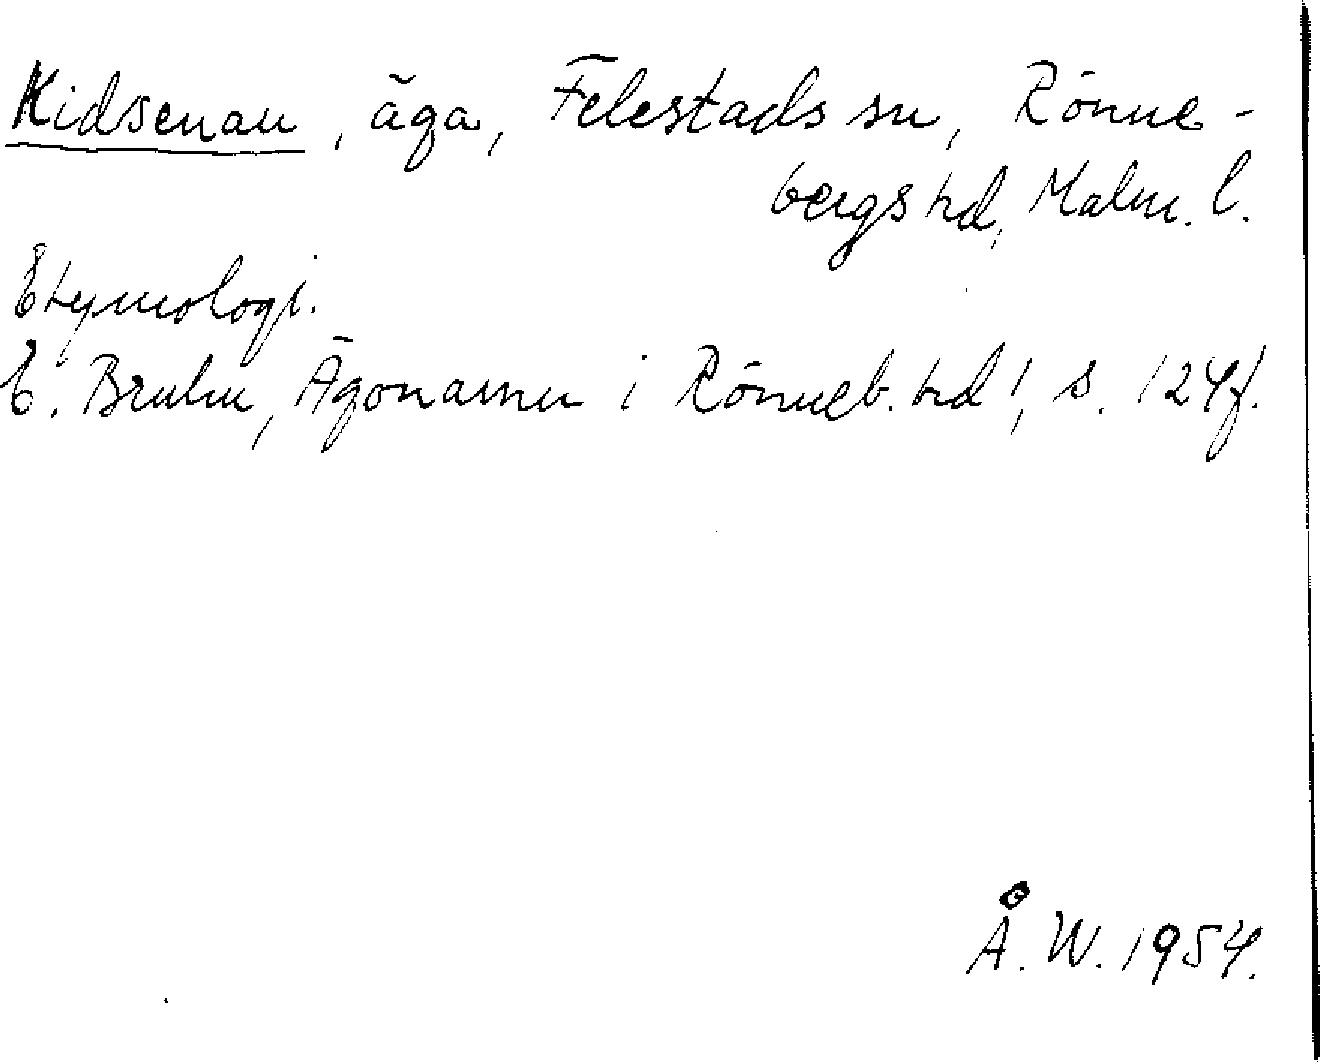 Kidsenau, äga, Felestads sn, Rönne-
bergs hd, Malm. l.
Etymologi.
E. Bruhn, Ägonamn i Rönneb. hd 1, s. 124f.
Å. W. 1954.